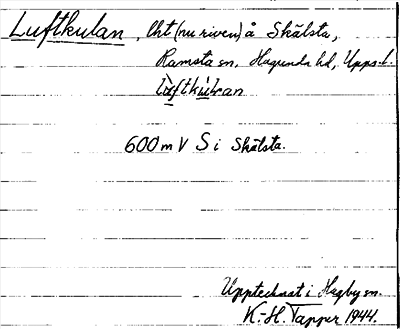 Luftkulan, lht (nu riven) å Skälsta,
Ramsta sn, Hagunda hd, Upps. l.
lùftkúlran
600 m V S i Skälsta.
Upptecknat i Hagby sn.
K.-H. Tapper 1944.